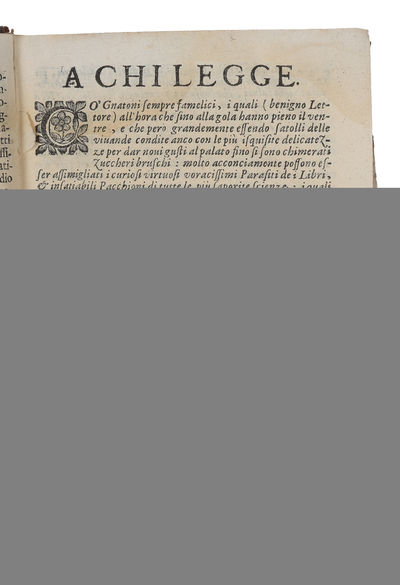 A CHI LEGGE.
CO' Gnatoni sempre famelici, i quali (benigno Let-
tore) all'hora che sino alla gola hanno pieno il ven-
tre, e che però grandemente essendo satolli delle
viuande condite anco con le più isquisite delicatez-
ze per dar noui gusti al palato sino si sono chimerati
Zuccheri bruschi: molto acconciamente possono es-
ser assimigliati i curiosi virtuosi voracissimi Parasiti de i Libri,
& insatiabili Pacchioni di tutte le più saporite scienze; i quali